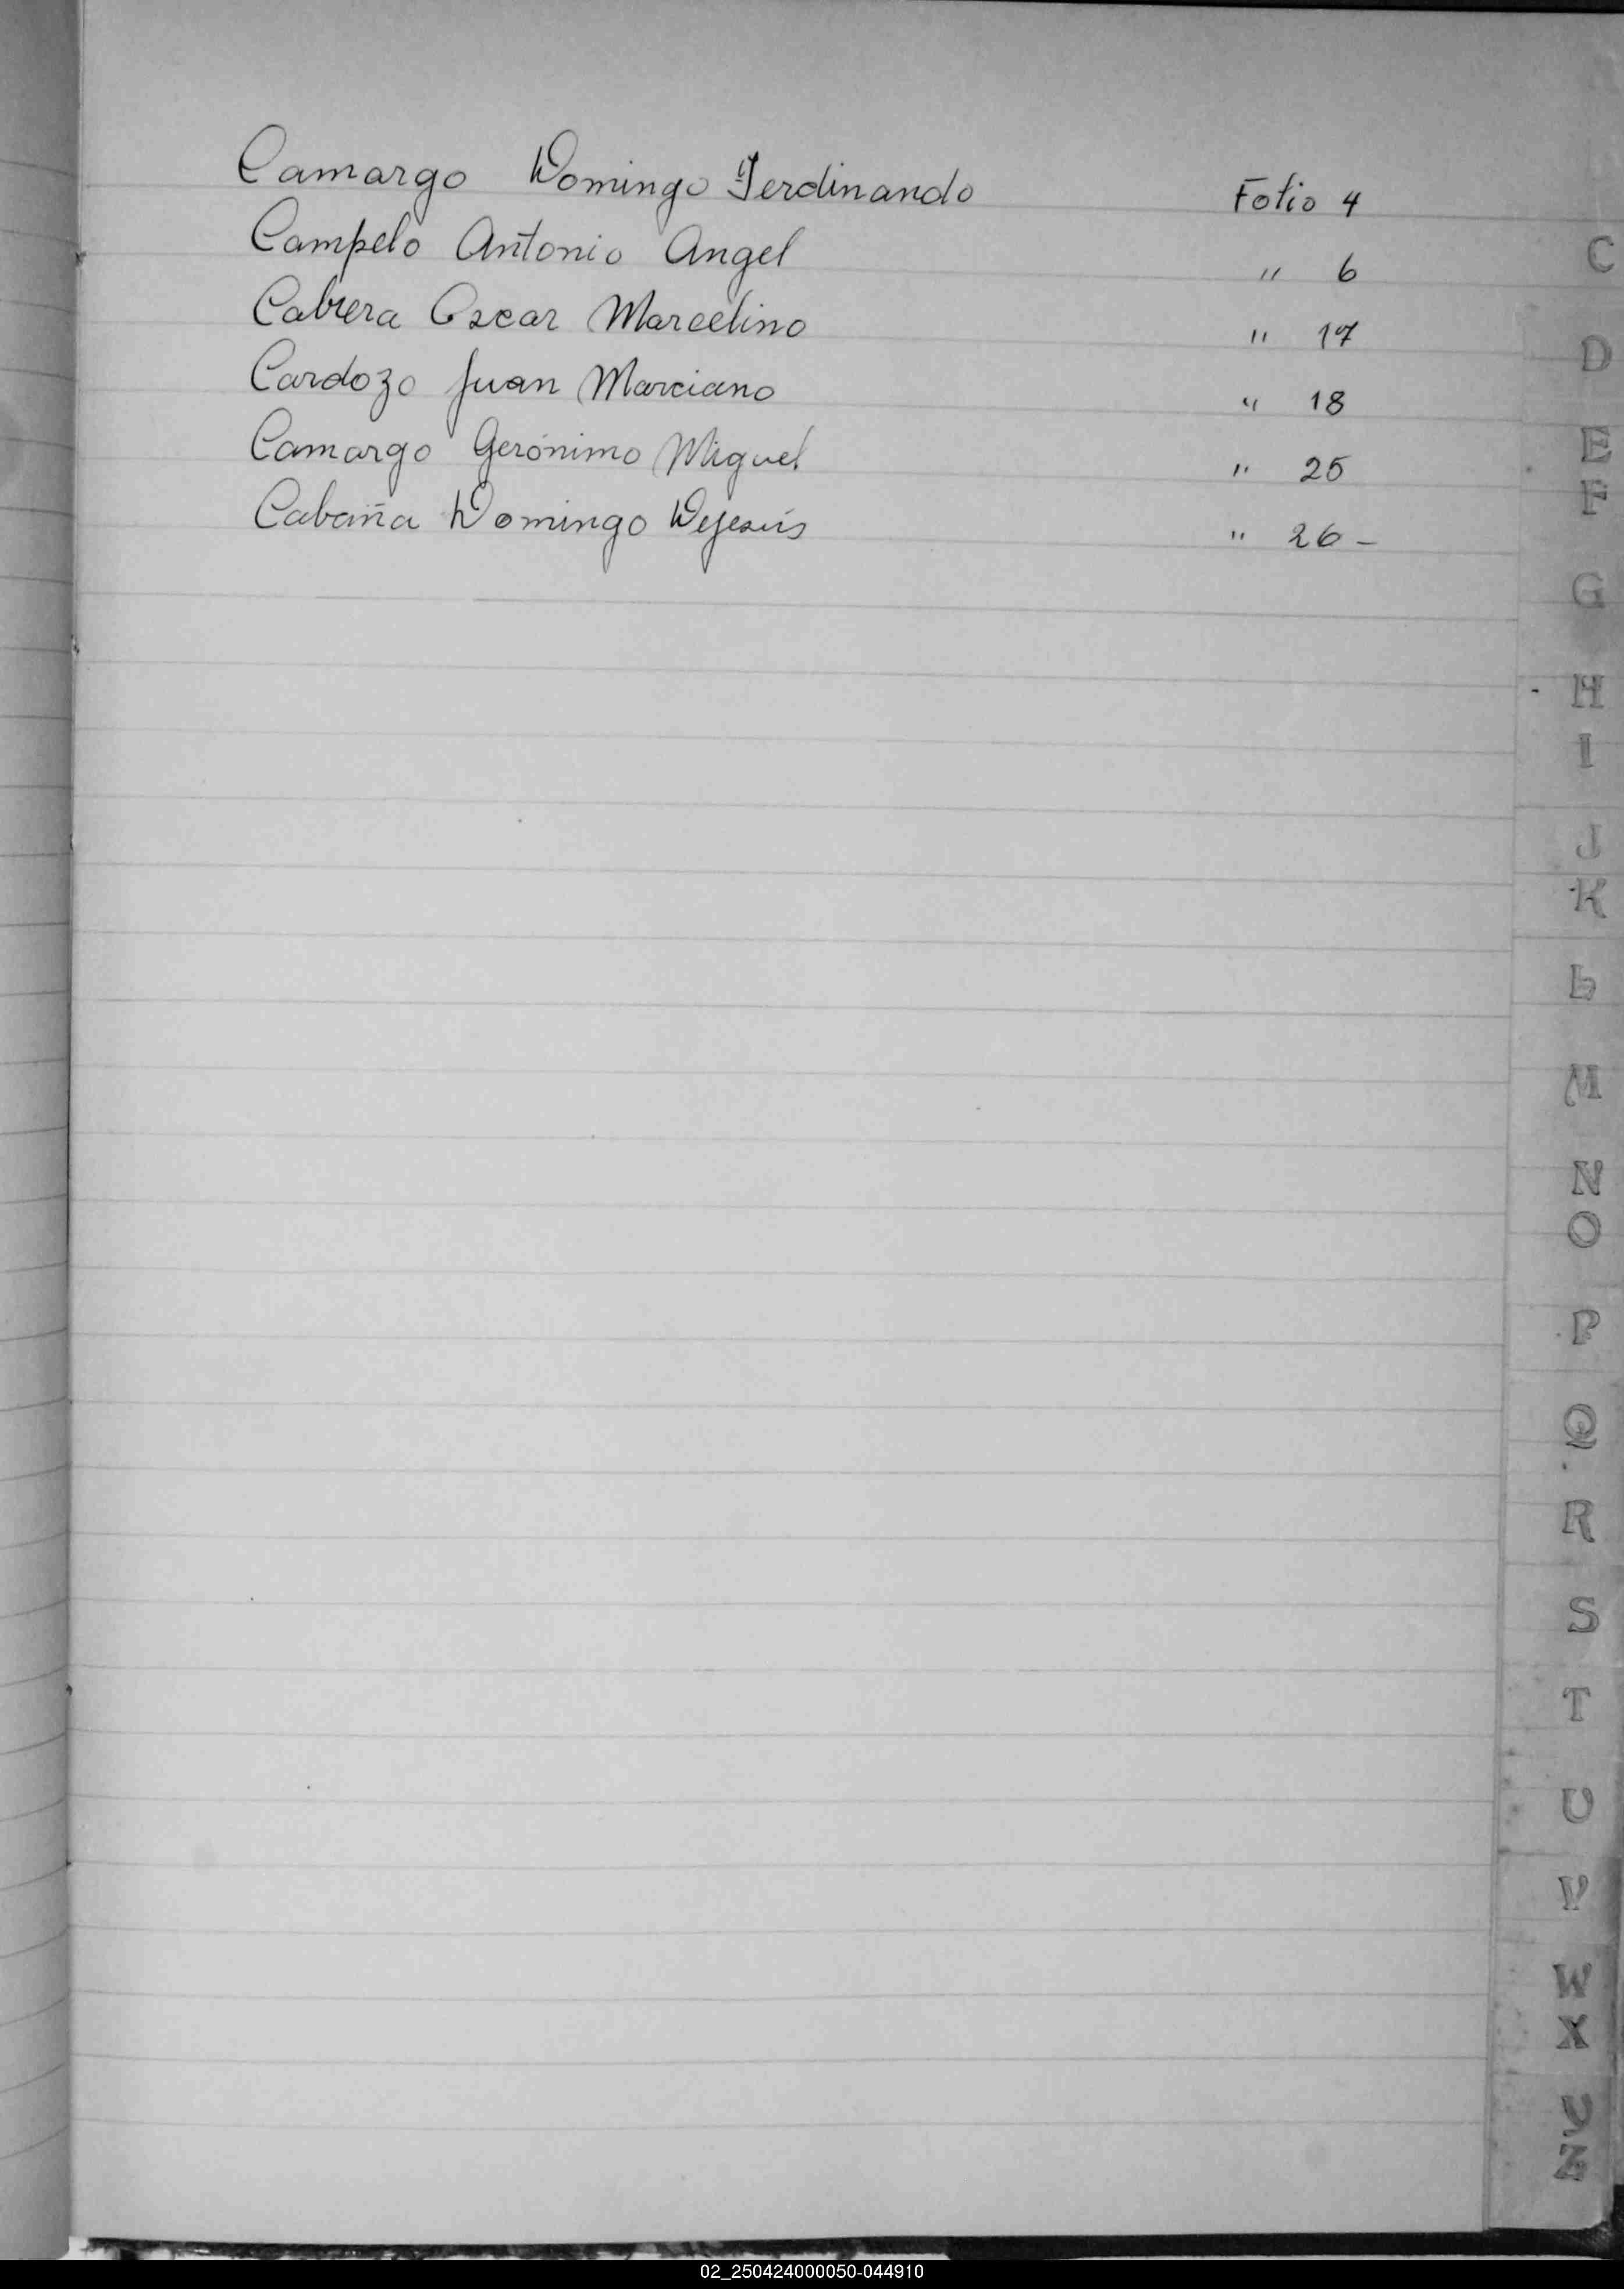 Camargo Domingo Ferdinando Folio 4
Campelo Antonio Angel " 6
Cabrera Oscar Marcelino " 17
Cardozo Juan Marciano " 18
Camargo Gerónimo Miguel " 25
Cabaña Domingo Dejesús " 26 -
C
D
E
F
G
H
I
J
K
L
M
N
O
P
Q
R
S
T
U
V
W
X
Y
Z
02_250424000050-044910